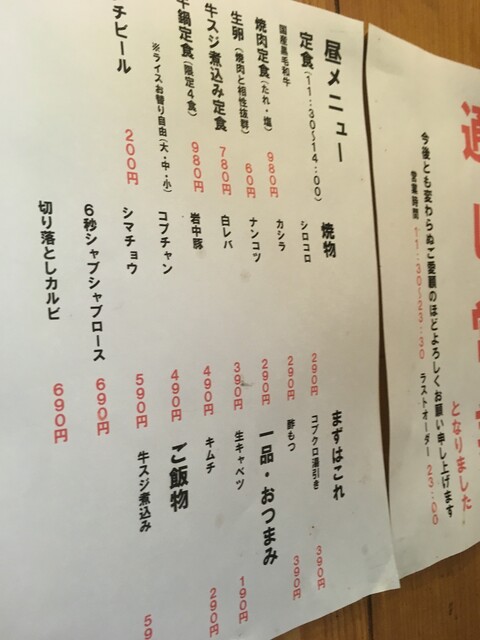 通し営業
となりました
今後とも変わらぬご愛顧のほどよろしくお願い申し上げます
営業時間 11:30~23:30 ラストオーダー 23:00
昼メニュー
定食(11:30~14:00)
国産黒毛和牛
焼肉定食(たれ・塩) 980円
生卵(焼肉と相性抜群) 60円
牛スジ煮込み定食 780円
牛鍋定食(限定4食) 980円
※ライスお替り自由(大・中・小)
チビール 200円
焼物
シロコロ 290円
カシラ 290円
ナンコツ 290円
白レバ 390円
岩中豚 490円
コプチャン 490円
シマチョウ 590円
6秒シャブシャブロース 690円
切り落としカルビ 690円
まずはこれ
コブクロ湯引き 390円
酢もつ 390円
一品・おつまみ
生キャベツ 190円
キムチ 290円
ご飯物
牛スジ煮込み 59